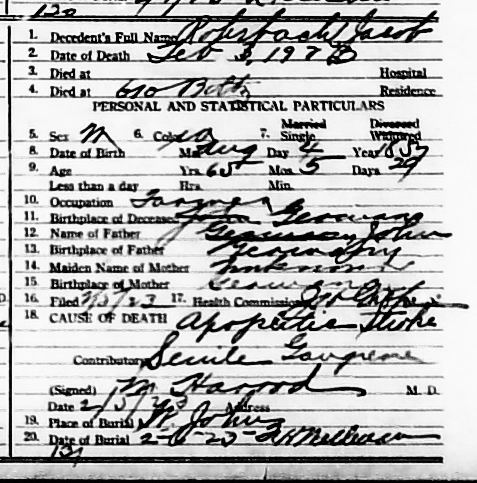 120
1. Decedent's Full Name Rohrbach, Jacob
2. Date of Death Feb 3, 192
3. Died at Hospital
4. Died at 610 Residence
PERSONAL AND STATISTICAL PARTICULARS
5. Sex M 6. Color W 7. Married Single Divorced Widowed
8. Date of Birth Mo. Aug Day 4 Year 1857
9. Age Yrs. 65 Mos. 5 Days 29
Less than a day Hrs. Min.
10. Occupation Farmer
11. Birthplace of Deceased John Germany
12. Name of Father Germany John
13. Birthplace of Father Germany
14. Maiden Name of Mother Unknown
15. Birthplace of Mother Germany
16. Filed 2/5/23 17. Health Commissioner
18. CAUSE OF DEATH Apoplectic Stroke
Contributory Senile Gangrene
(Signed) M Harrod M. D.
Date 2/5/23 Address
19. Place of Burial St. Johns
20. Date of Burial 2-6-23
131